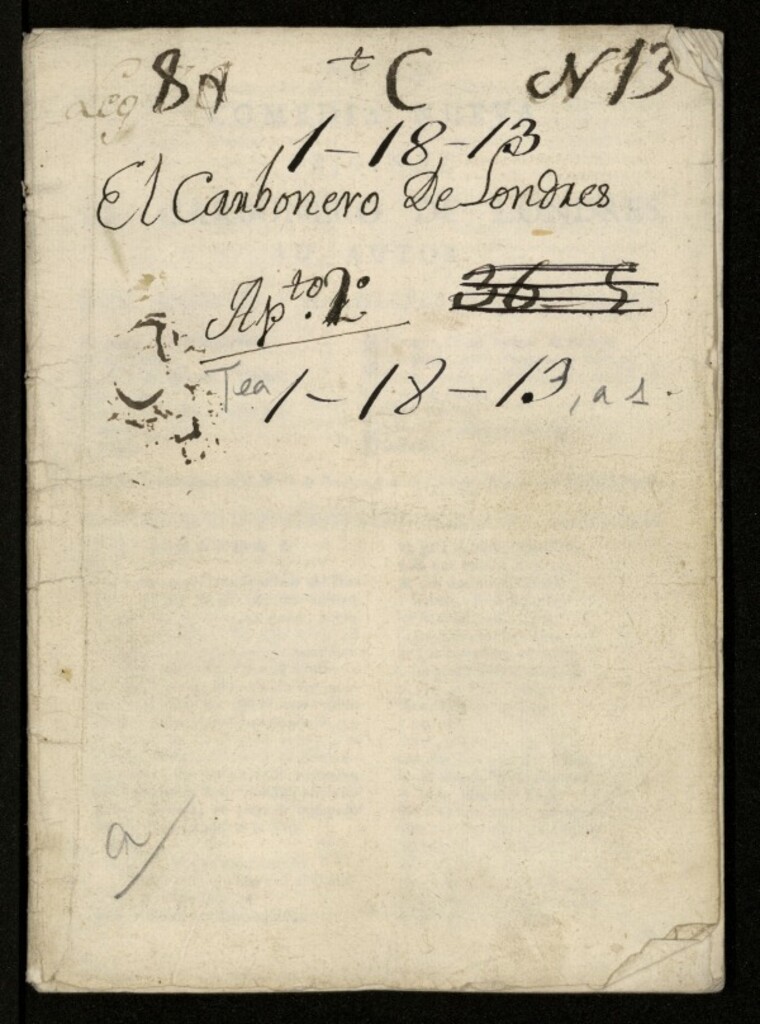 Leg 8º t C N 13
1-18-13
El Carbonero De Londres
Apto. 2º 36-5
Tea 1-18-13, a 1.
a/